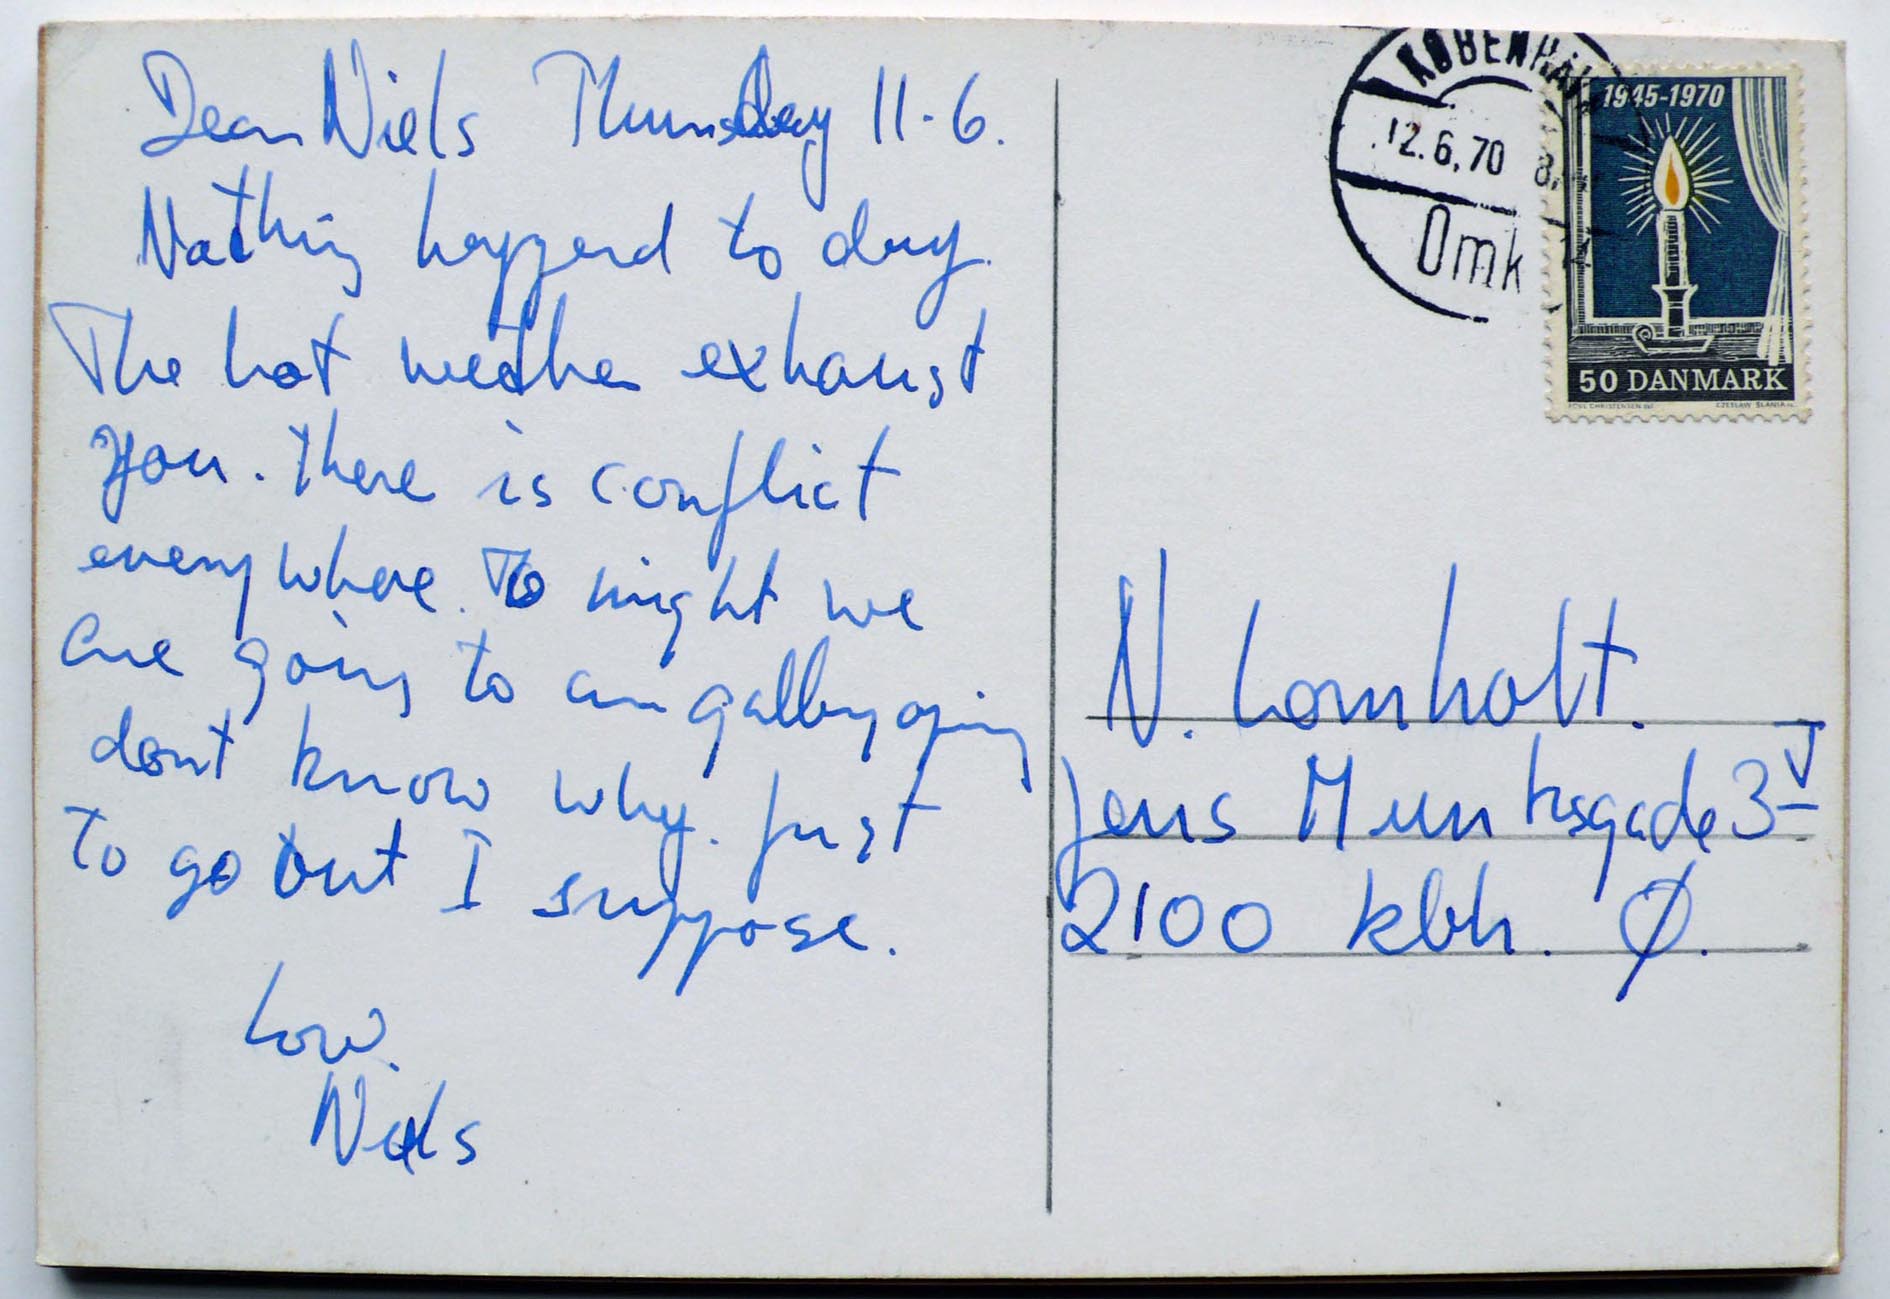 Dear Niels Thursday 11-6.
Nathing happend to day.
The hot weather exhaust
you. There is conflict
everywhere. To night we
are going to an gallery oping
dont know why. Just
to go out I suppose.
Love.
Niels
KØBENHAVN
12.6.70
Omk
1945-1970
50 DANMARK
CZESLAW SLANIA
N. Lomholt.
Jens Munksgade 3 V
2100 kbh. Ø.